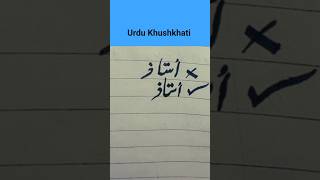 Urdu Khushkhati
اُستاذ ✗
اُستاذ ✓